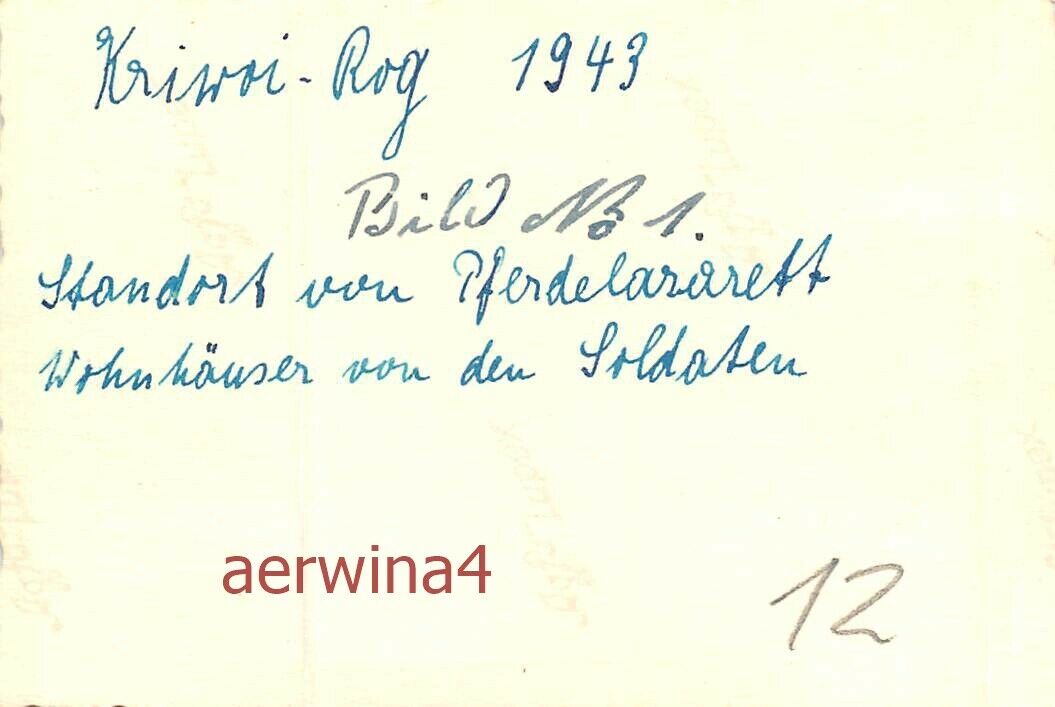 Kriwoi-Rog 1943
Bild No 1.
Standort von Pferdelazarett
Wohnhäuser von den Soldaten
aerwina4
12